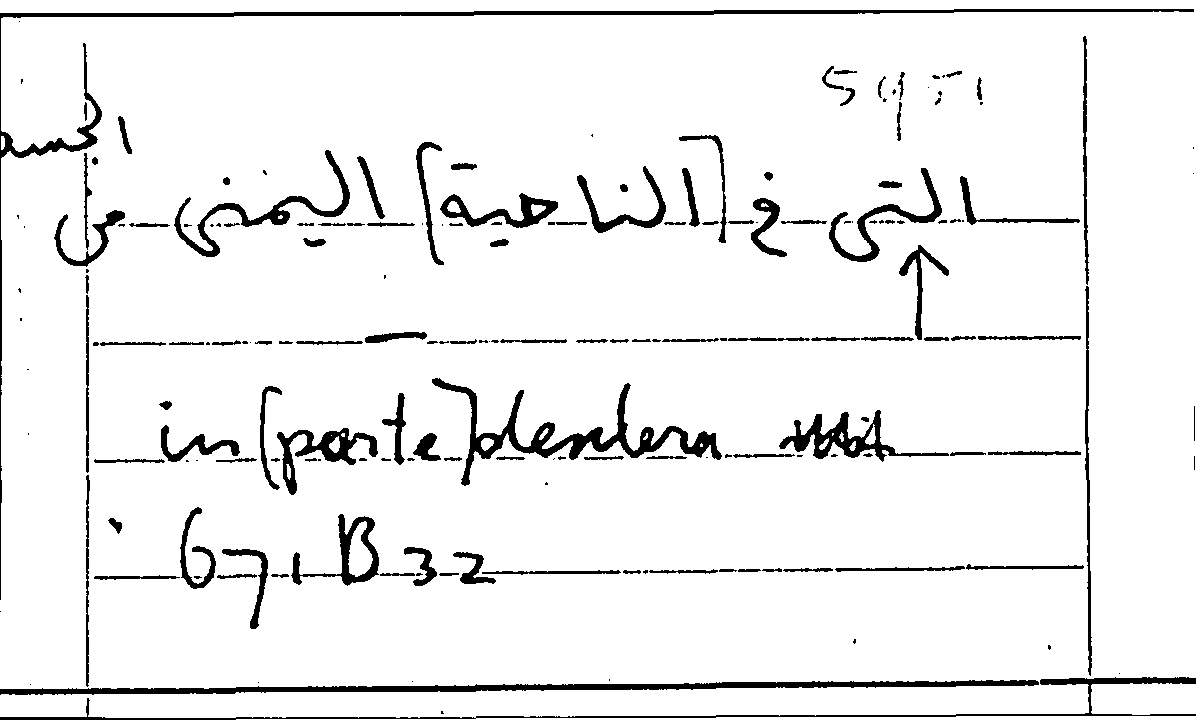 التى فى [الناحية] اليمنى من
in [parte] dextera
671 B 32